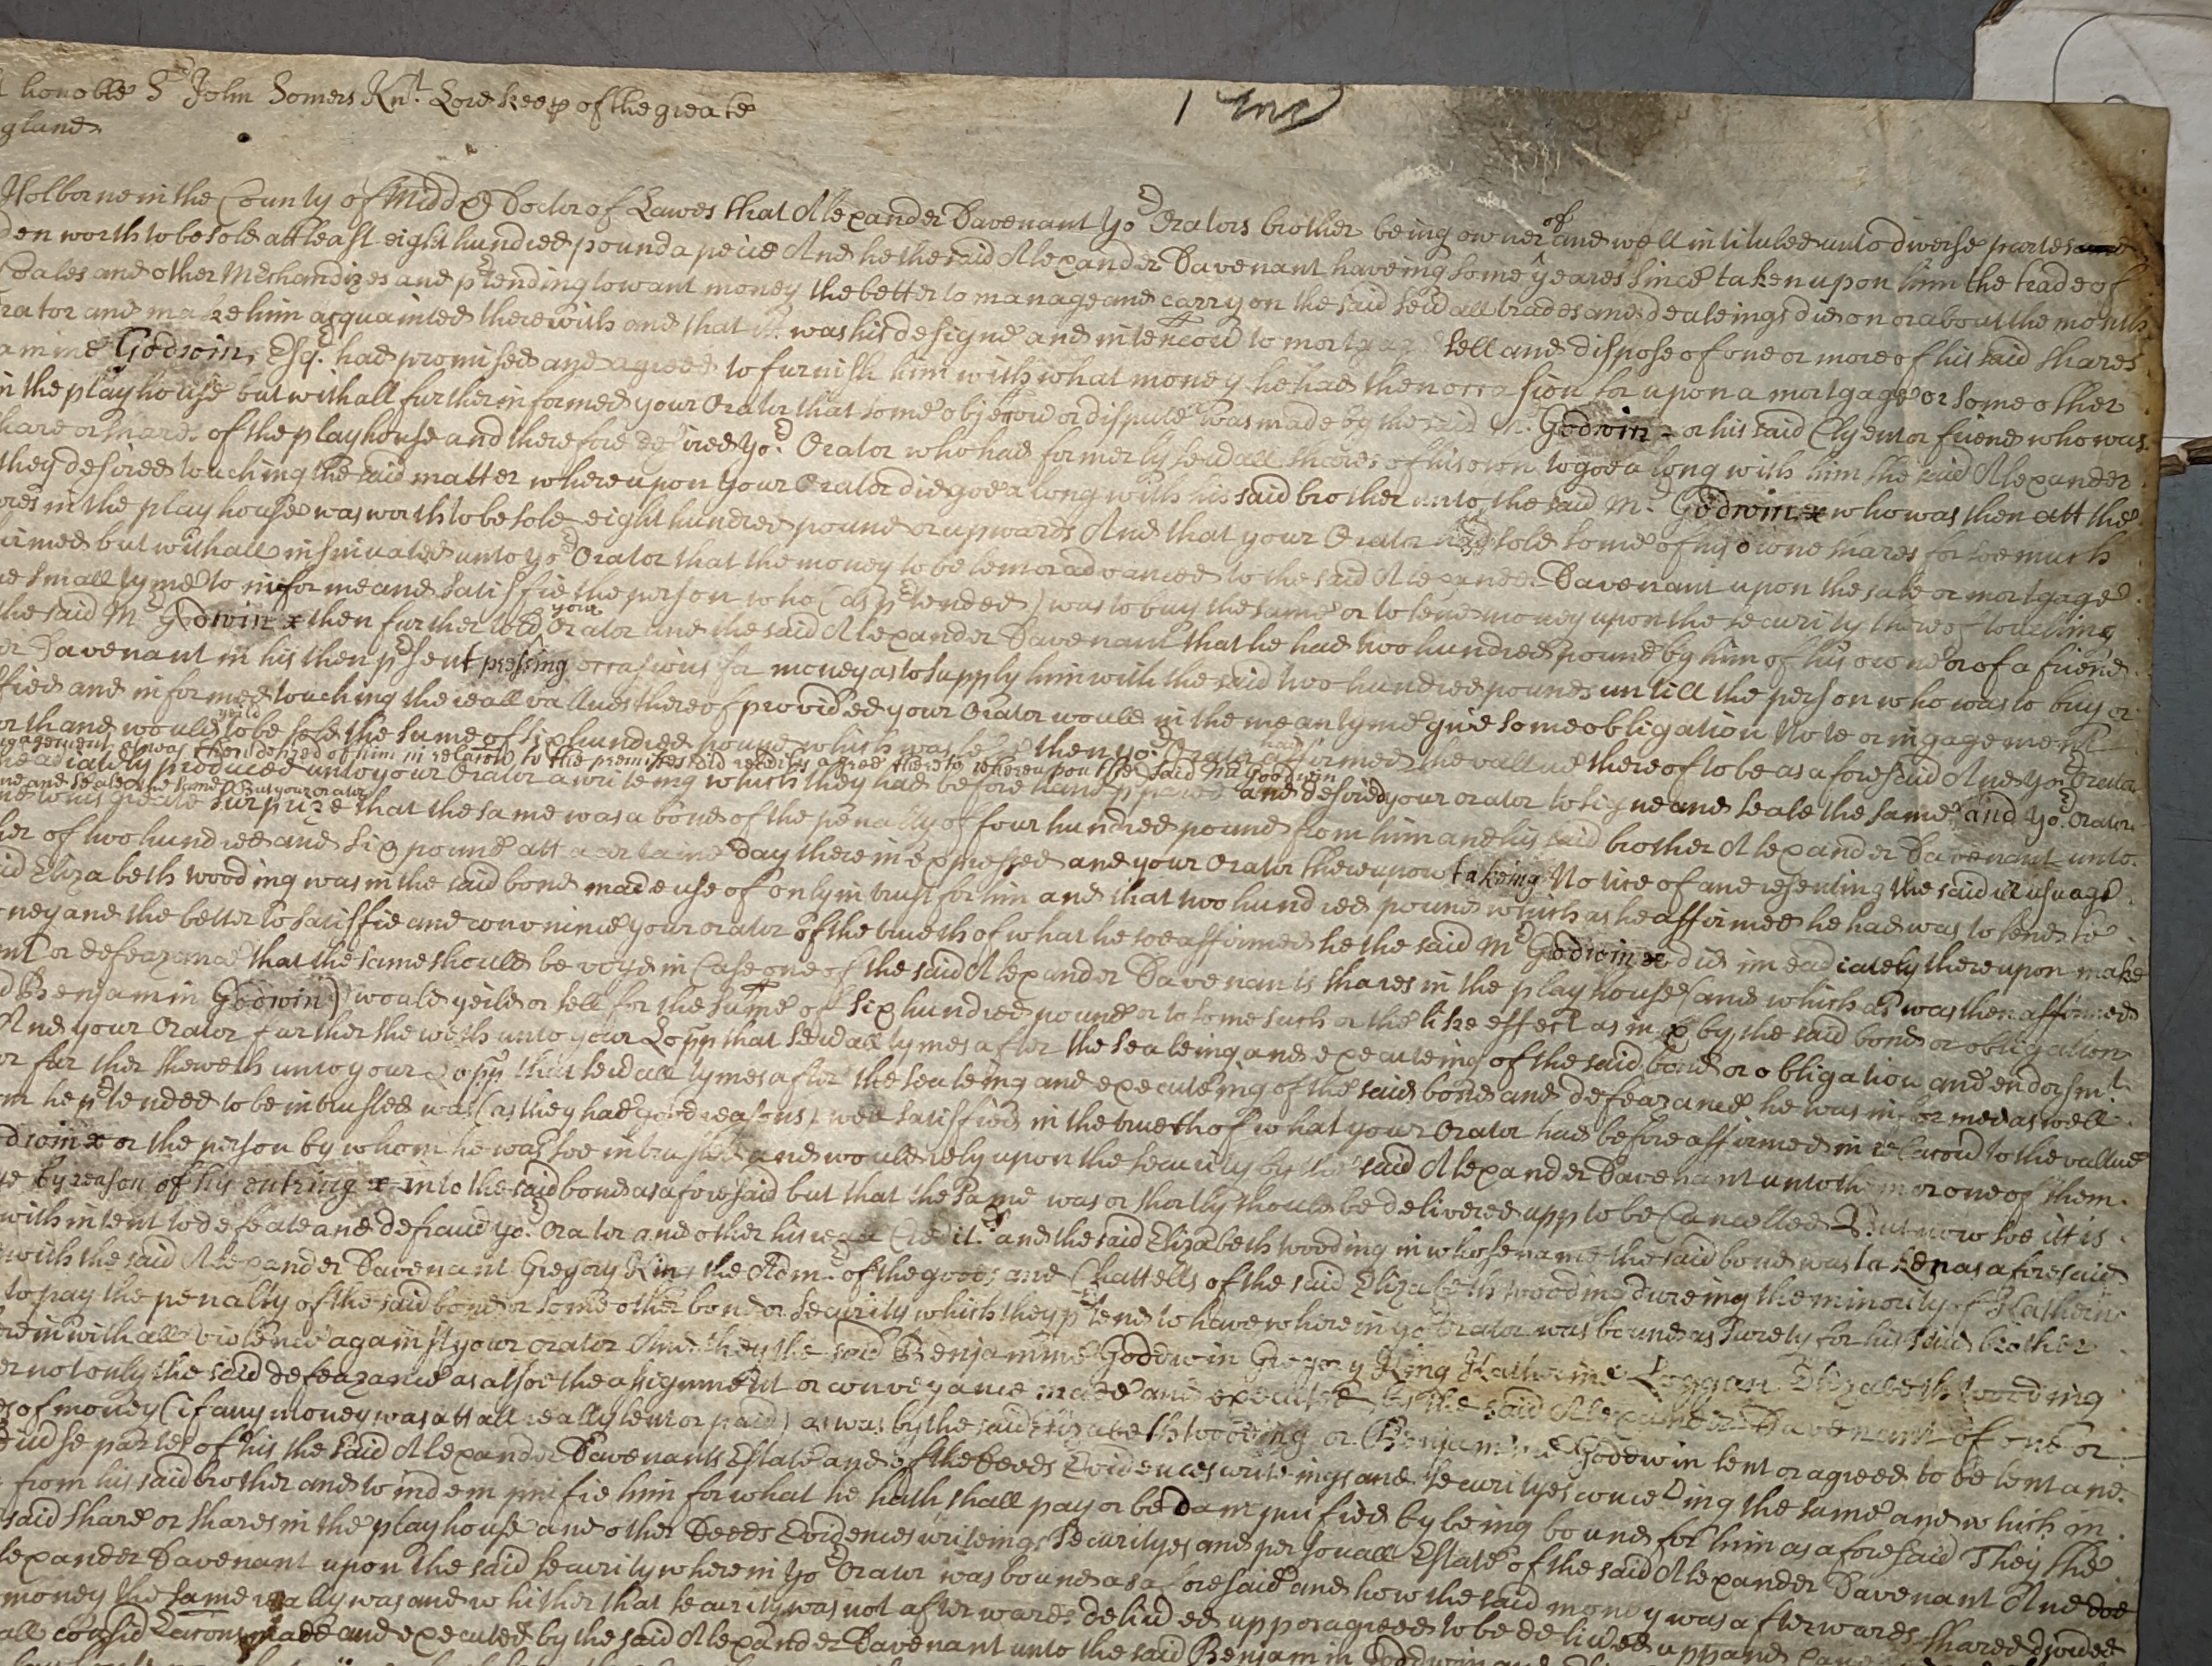 honoble Sr John Somers Knt. Lord keep of the greate
gland
Holborne in the County of Middx Doctor of Lawes that Alexander Davenant yor Orators brother being owner of and well intituled unto diverse partes
den worth to be sold att least eight hundred pound a peice And he the said Alexander Davenant haveing some yeares since taken upon him the trade of
Coales and other Merchandizes and prtending to want money the better to manage and carry on the said sevall trades and dealeings did on or about the month
rator and make him acquainted therewith and that itt was his designe and intencon to mortgage sell and dispose of one or more of his said shares
amine Godwin, Esqr. had promised and agreed to furnish him with what money he had then occasion for upon a mortgage or some other
in the playhouse but withall further informed your Orator that some objecon or dispute was made by the said Mr. Godwin or his said Clyent or friend who was
hare or shares of the playhouse and therefore desired yor. Orator who had formerly sevall shares of his own to goe along with him the said Alexander
they desired touching the said matter whereupon your Orator did goe along with his said brother unto the said Mr. Godwin x who was then att the
ares in the playhouse was worth to be sold eight hundred pound or upwards And that your Orator had sold some of his owne shares for soe much
irmed but withall insinuated unto yor Orator that the money to be lent or advanced to the said Alexander Davenant upon the sale or mortgage
e small tyme to informe and satisfie the person who (as prtended) was to buy the same or to lend money upon the security thereof touching
the said Mr Godwin x then further told your Orator and the said Alexander Davenant that he had two hundred pound by him of his owne or of a friend
er Davenant in his then prsent pressing occasions for money as to supply him with the said two hundred pounds untill the person who was to buy or
fied and informed touching the reall vallues thereof provided your Orator would in the mean tyme give some obligation Note or ingagement
orth and would yeild to be sold the sume of six hundred pound which was lesse then yor Orator had affirmed the vallue thereof to be as aforesaid And yor Orator
ngagement as was then desired of him in relacon to the premisses did readily agree thereto whereupon the said Mr Godwin
mediately produced unto your Orator a writeing which they had before hand prpared and desired your orator to signe and seale the same and yor. Orator
and seale the same But your orator
to his greate surprize that the same was a bond of the penalty of four hundred pound from him and his said brother Alexander Davenant unto
her of two hundred and six pound att a certaine day therein expressed and your Orator thereupon takeing Notice of and resenting the said ill usuage
id Elizabeth wooding was in the said bond made use of only in trust for him and that two hundred pound which as he affirmed he had was to lend to
ney and the better to satisfie and convinnce your orator of the trueth of what he soe affirmed he the said Mr Godwin x did imeadiately thereupon make
nt or defeazance that the same should be voyd in Case one of the said Alexander Davenants shares in the playhouse (and which as was then affirmed
d Benjamin Godwin) would yeild or sell for the sume of six hundred pound or to some such or the like effect as in & by the said bond or obligation
And your Orator further sheweth unto your Lopp that sevall tymes after the sealeing and executeing of the said bond or obligation and endorsmt.
or further sheweth unto your Lopp that sevall tymes after the sealeing and executeing of the said bond and defeazance he was informed as well
m he prtended to be intrusted was (as they had good reasons) well satisfied in the trueth of what your Orator had before affirmed in relacon to the vallue
dwin x or the person by whom he was soe intrusted and would rely upon the security by the said Alexander Davenant unto them or one of them
ye by reason of his entring x into the said bond as aforesaid but that the same was or shortly should be delivered upp to be Cancelled But now soe itt is
with intent to defeate and defraud yor. Orator and other his reall Creditrs and the said Elizabeth wooding in whose name the said bond was taken as aforesaid
with the said Alexander Davenant Gregory King the Admr. of the goods and Chattells of the said Elizabeth wooding dureing the minority of Katherine
to pay the penalty of the said bond or some other bond or security which they prtend to have wherein yor Orator was bound as surety for his said brother
rein with all violence against your orator And they the said Benjamine Goddwin Gregory King Katherine Loggan Elizabeth wooding
er not only the said defeazance as alsoe the assignment or conveyance made and executed by the said Alexander Davenant of one or
es of money (if any money was att all really lent or paid) as was by the said Elizabeth wooding or Benjamine Goddwin lent or agreed to be lent and
diverse partes of his the said Alexander Davenants Estate and of the Deeds Evidences writeings and securityes concerning the same and which in
from his said brother and to indempnifie him for what he hath shall pay or be dampnified by being bound for him as aforesaid They the
said share or shares in the playhouse and other Deeds Evidences writeings securityes and personall Estate of the said Alexander Davenant And doe
lexander Davenant upon the said security wherein yor Orator was bound as aforesaid and how the said money was afterwards shared divided
money the same really was and whither that security was not afterwards delivered upp or agreed to be delivered upp and
all consideracons made and executed by the said Alexander Davenant unto the said Benjamin Goddwin and